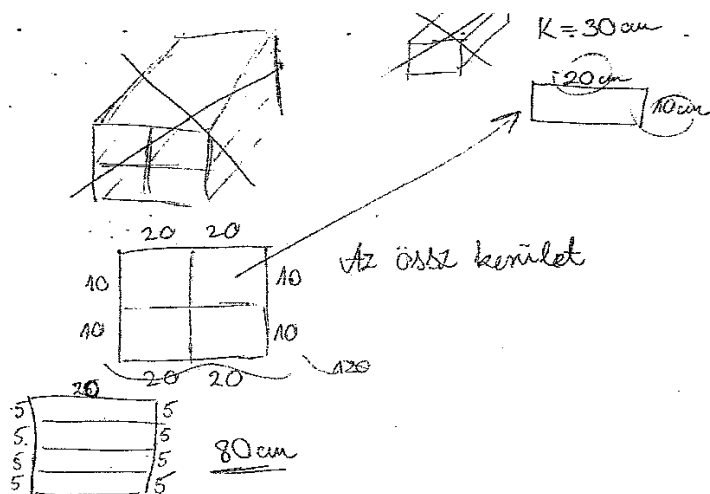 K = 30 cm
20 cm
10 cm
20 20
10 10
Az össz kerület
10 10
20 20
120
20
5 5
5 5
5 5
5 5
80 cm